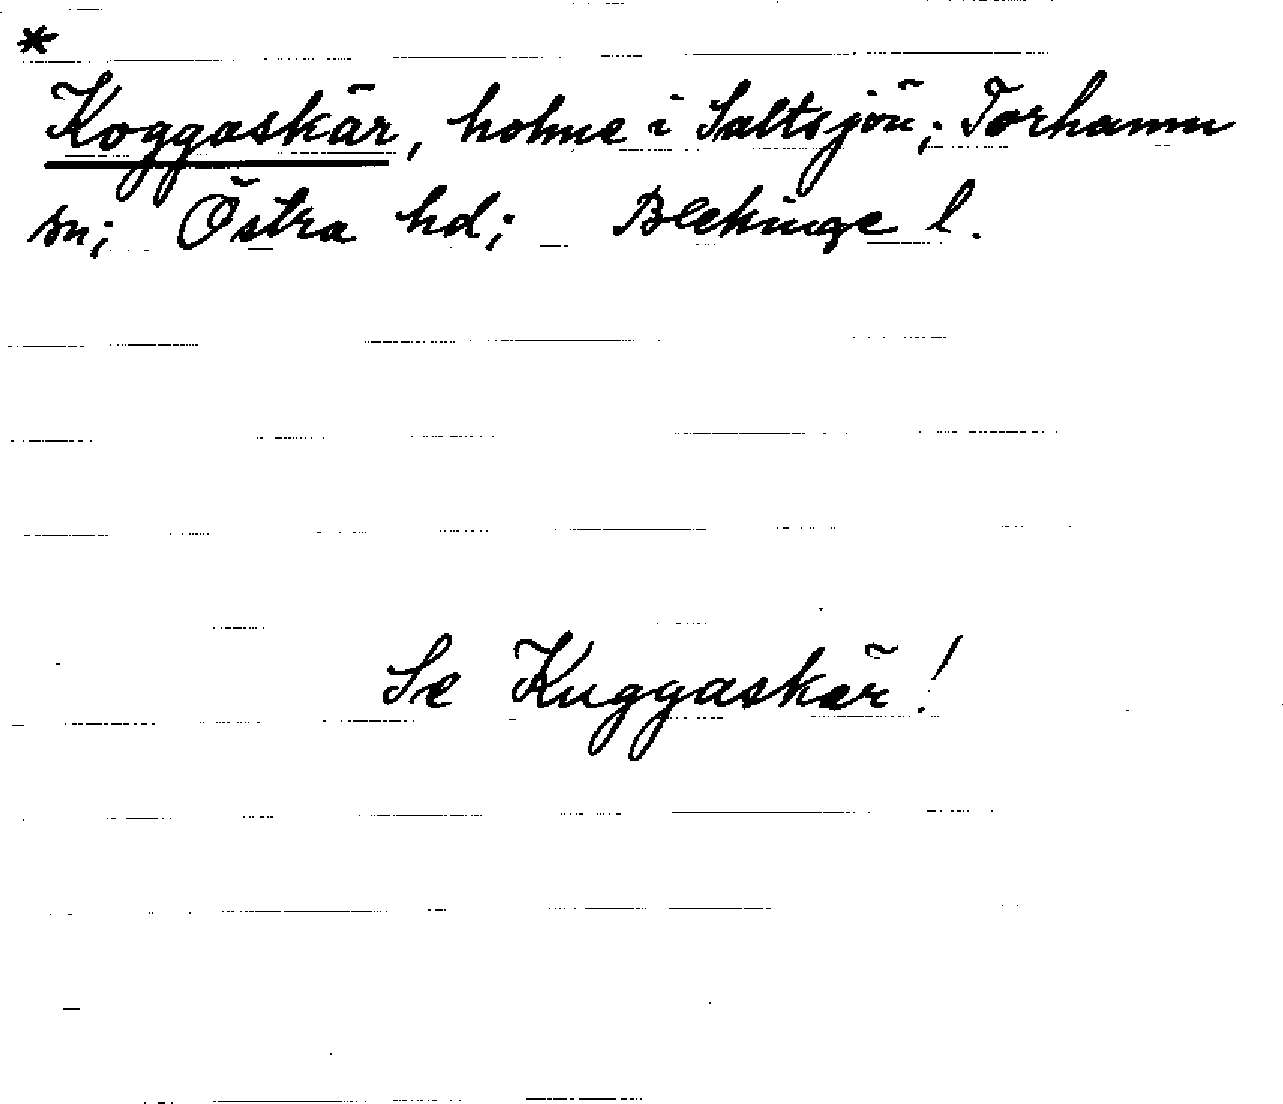 *
Koggaskär, holme i Saltsjön; Torhamn
sn; Östra hd; Blekinge l.
Se Kuggaskär!